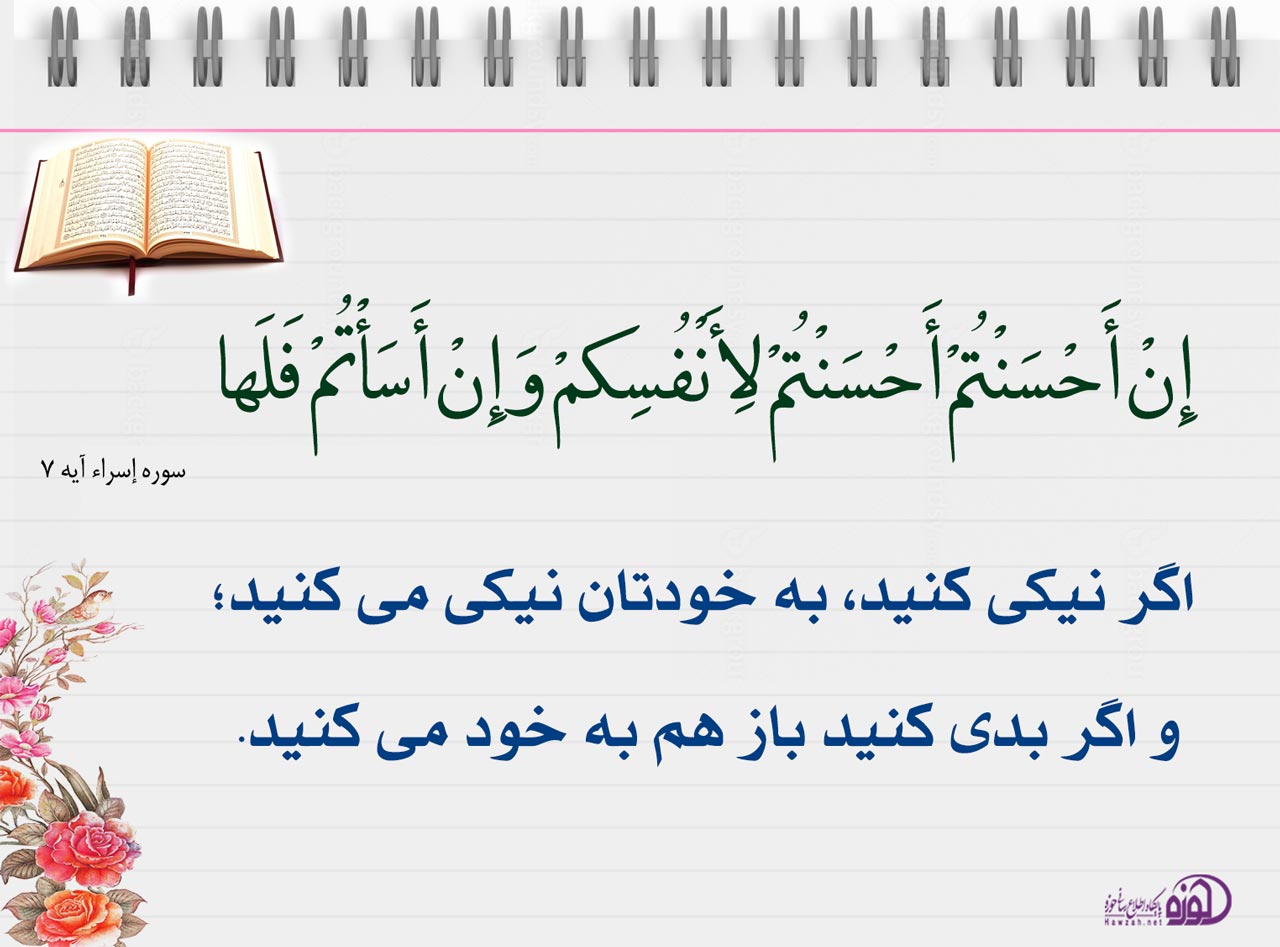 إِنْ أَحْسَنْتُمْ أَحْسَنْتُمْ لِأَنْفُسِكمْ وَ إِنْ أَسَأْتُمْ فَلَها
سوره إسراء آیه ۷
اگر نیکی کنید، به خودتان نیکی می کنید؛
و اگر بدی کنید باز هم به خود می کنید.
حوزه
پایگاه اطلاع رسانی حوزه
Hawzah.net